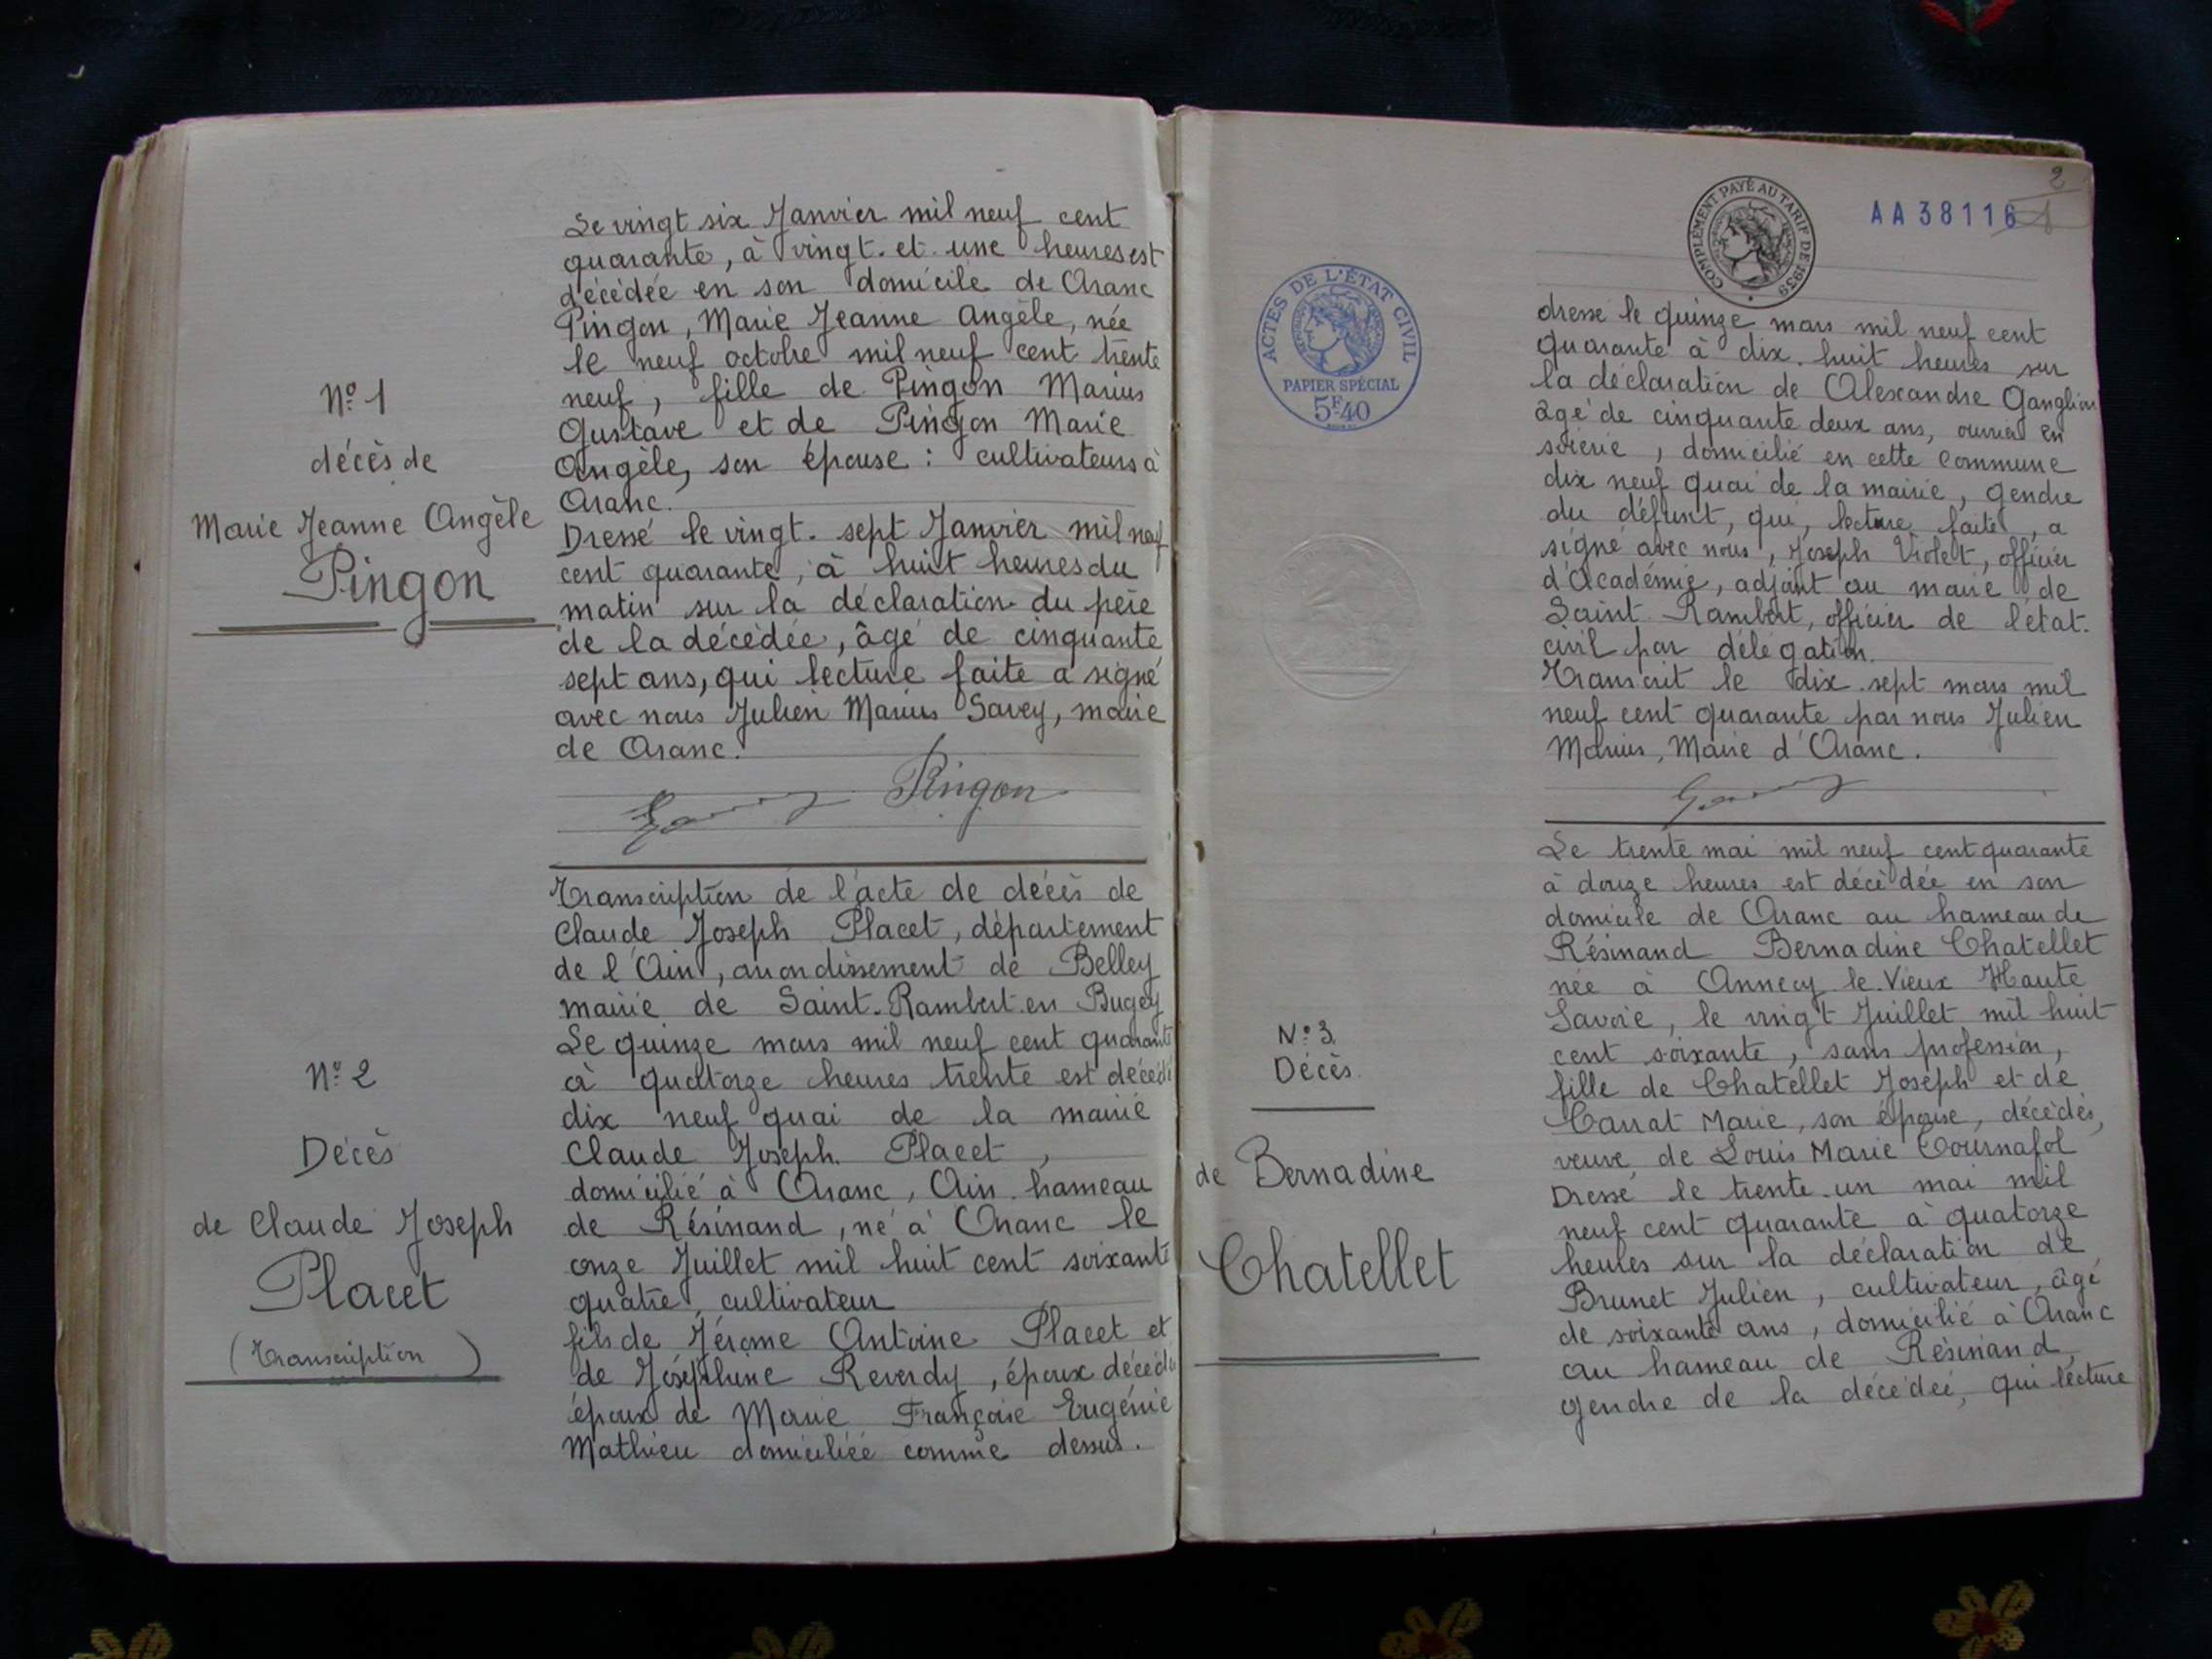 Nº 1
décès de
Marie Jeanne Angèle
Pingon
Le vingt six Janvier mil neuf cent
quarante, à vingt. et. une heures est
décédée en son domicile de Aranc
Pingon, Marie Jeanne Angèle, née
le neuf octobre mil neuf cent trente
neuf, fille de Pingon Marius
Gustave et de Pingon Marie
Angèle, son épouse : cultivateurs à
Aranc.
Dressé le vingt. sept Janvier mil neuf
cent quarante, à huit heures du
matin sur la déclaration du père
de la décédée, âgé de cinquante
sept ans, qui lecture faite a signé
avec nous Julien Marius Savey, maire
de Aranc.
Pingon
Nº 2
Décès
de Claude Joseph
Placet
(Transcription)
Transcription de l'acte de décès de
Claude Joseph Placet, département
de l'Ain, arrondissement de Belley
mairie de Saint-Rambert-en Bugey
Le quinze mars mil neuf cent quarante
à quatorze heures trente est décédé
dix neuf quai de la mairie
Claude Joseph Placet,
domicilié à Aranc, Ain. hameau
de Résinand, né à Aranc le
onze Juillet mil huit cent soixante
quatre, cultivateur
fils de Jérome Antoine Placet et
de Joséphine Reverdy, époux décédés
époux de Marie Françoise Eugénie
Mathieu domiciliée comme dessus.
2
AA 38116
COMPLÉMENT PAYÉ AU TARIF DE 1939
ACTES DE L'ÉTAT CIVIL
PAPIER SPÉCIAL
5F40
dressé le quinze mars mil neuf cent
quarante à dix. huit heures sur
la déclaration de Alexandre
âgé de cinquante deux ans, ouvrier en
soierie, domicilié en cette commune
dix neuf quai de la mairie, gendre
du défunt, qui, lecture faite, a
signé avec nous, Joseph Violet, officier
d'Académie, adjoint au maire de
Saint Rambert, officier de l'état.
civil par délégation.
Transcrit le dix. sept mars mil
neuf cent quarante par nous Julien
Marius, Maire d'Aranc.
Nº 3.
Décès.
de Bernadine
Chatellet
Le trente mai mil neuf cent quarante
à douze heures est décédée en son
domicile de Aranc au hameau de
Résinand Bernadine Chatellet
née à Annecy-le-Vieux Haute
Savoie, le vingt Juillet mil huit
cent soixante, sans profession,
fille de Chatellet Joseph et de
Carrat Marie, son épouse, décédés,
veuve de Louis Marie Tournafol
Dressé le trente-un mai mil
neuf cent quarante à quatorze
heures sur la déclaration de
Brunet Julien, cultivateur, âgé
de soixante ans, domicilié à Aranc
au hameau de Résinand,
gendre de la décédée, qui lecture